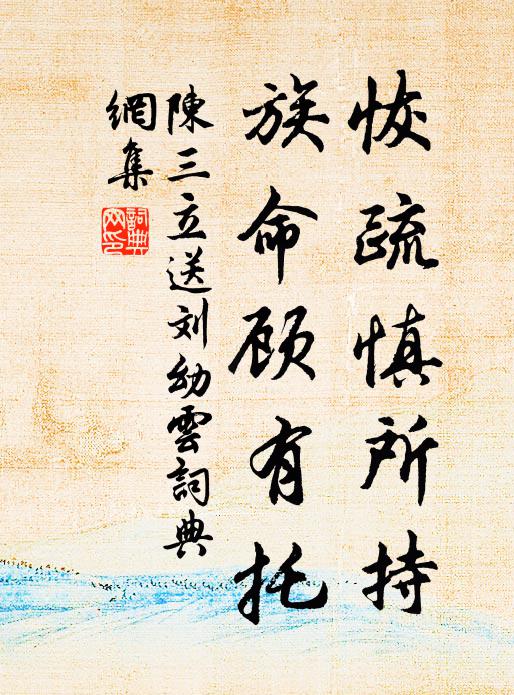 恢疏慎所持
族命顾有托
陳三立送刘幼雲詞典
網集
詞典
网印